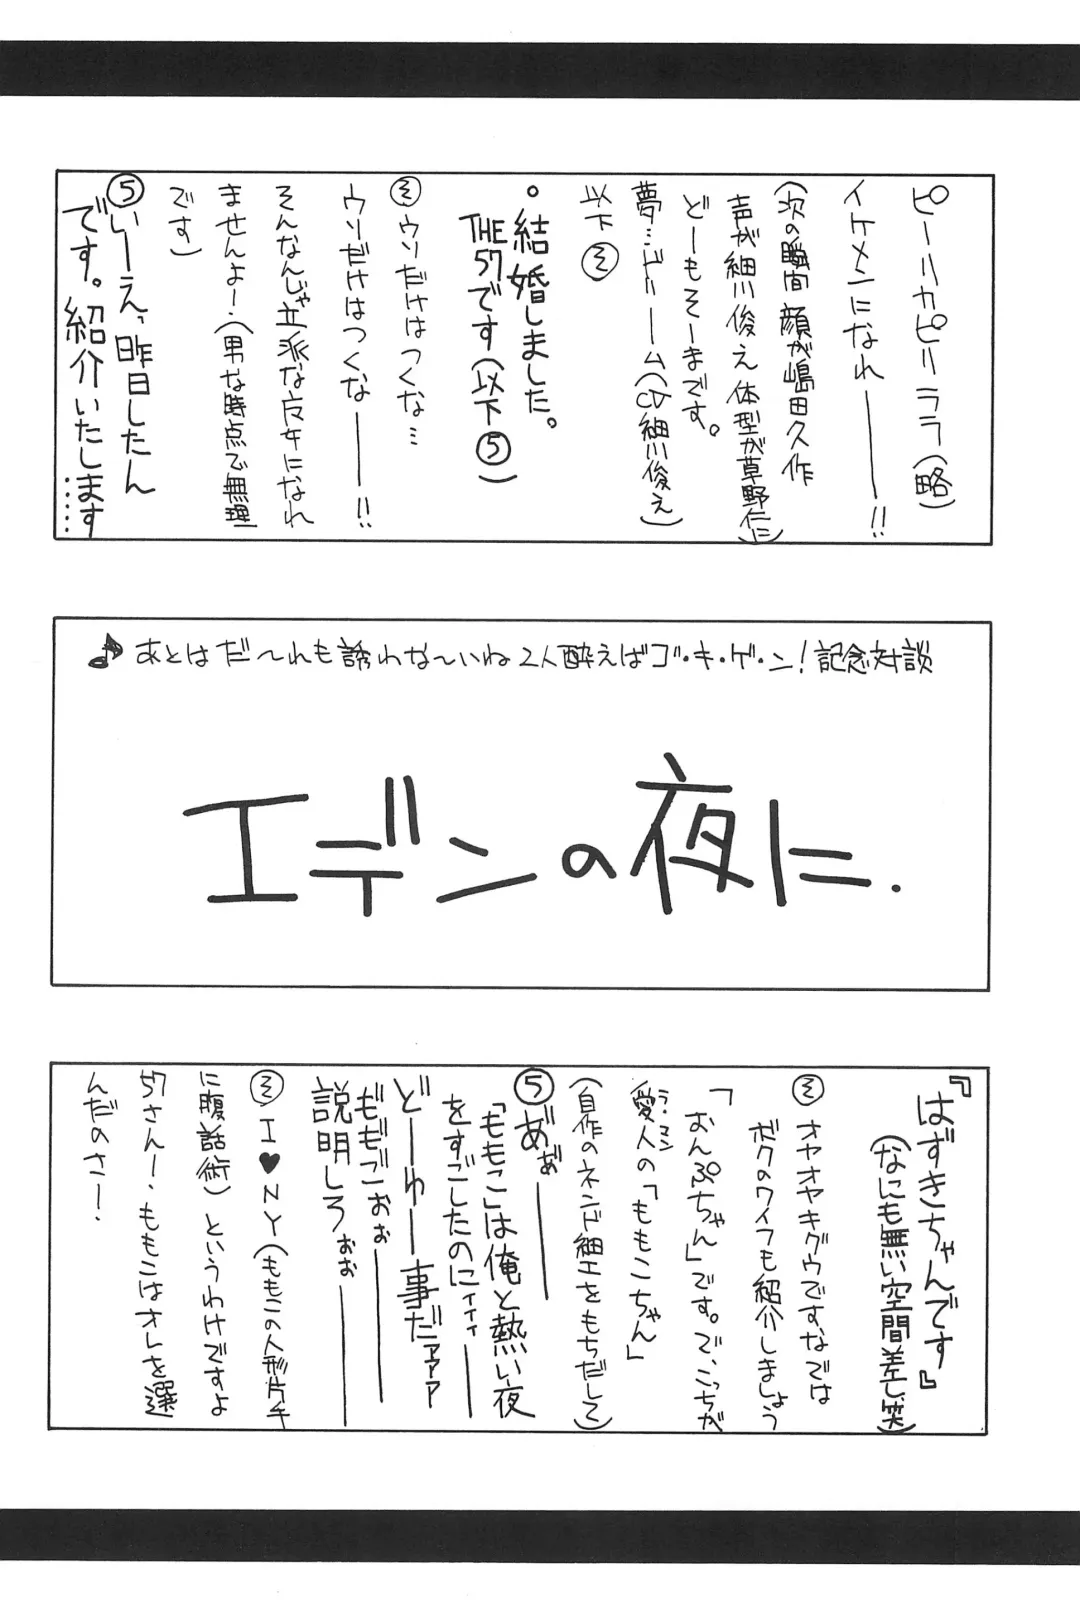 ピーリカピリララ(略)
イケメンになれ———!!
(次の瞬間 顔が嶋田久作
声が細川俊之 体型が草野仁に)
どーもそーまです。
夢…ドリーム(CV細川俊之)
以下 そ
。結婚しました。
THE57です(以下 5)
そ ウソだけはつくな…
ウソだけはつくな———!!
そんなんじゃ立派な女になれ
ませんよー。(男な時点で無理
です)
5 いーえ、昨日したん
です。紹介いたします……
♪あとはだ〜れも誘わな〜いね2人酔えばゴ・キ・ゲ・ン!記念対談
エデンの夜に.
『はずきちゃんです』
(なにも無い空間差し笑)
そ オヤオヤキグウですなでは
ボクのワイフも紹介しましょう
「おんぷちゃん」です。で、こっちが
愛人の「ももこちゃん」
(自作のネンド細工をもちだして)
5 あ゛ぁ゛———
「ももこ」は俺と熱い夜
をすごしたのにィィィ———
どーゆー事だァァァ
ももごおぉ———
説明しろぉぉ———
そ I♥NY(ももこの人形片手
に腹話術)というわけですよ
57さん!ももこはオレを選
んだのさー。